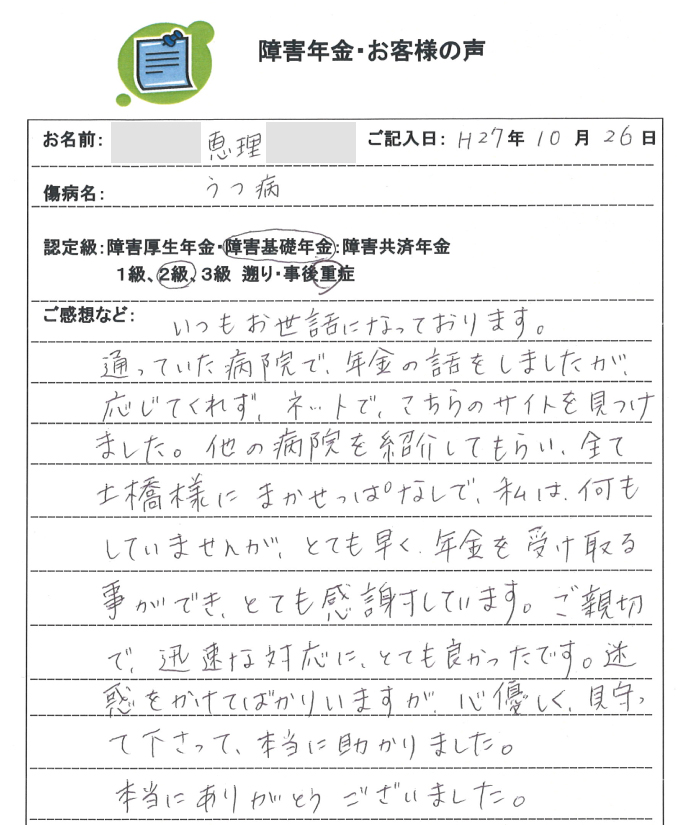 障害年金・お客様の声
お名前: 恵理 ご記入日: H27年 10月 26日
傷病名: うつ病
認定級:障害厚生年金・障害基礎年金:障害共済年金
1級、2級、3級 遡り・事後重症
ご感想など: いつもお世話になっております。
通っていた病院で、年金の話をしましたが、
応じてくれず、ネットで、こちらのサイトを見つけ
ました。他の病院を紹介してもらい、全て
土橋様にまかせっぱなしで、私は、何も
していませんが、とても早く、年金を受け取る
事ができ、とても感謝しています。ご親切
で、迅速な対応に、とても良かったです。迷
惑をかけてばかりいますが、心優しく、見守っ
て下さって、本当に助かりました。
本当にありがとうございました。